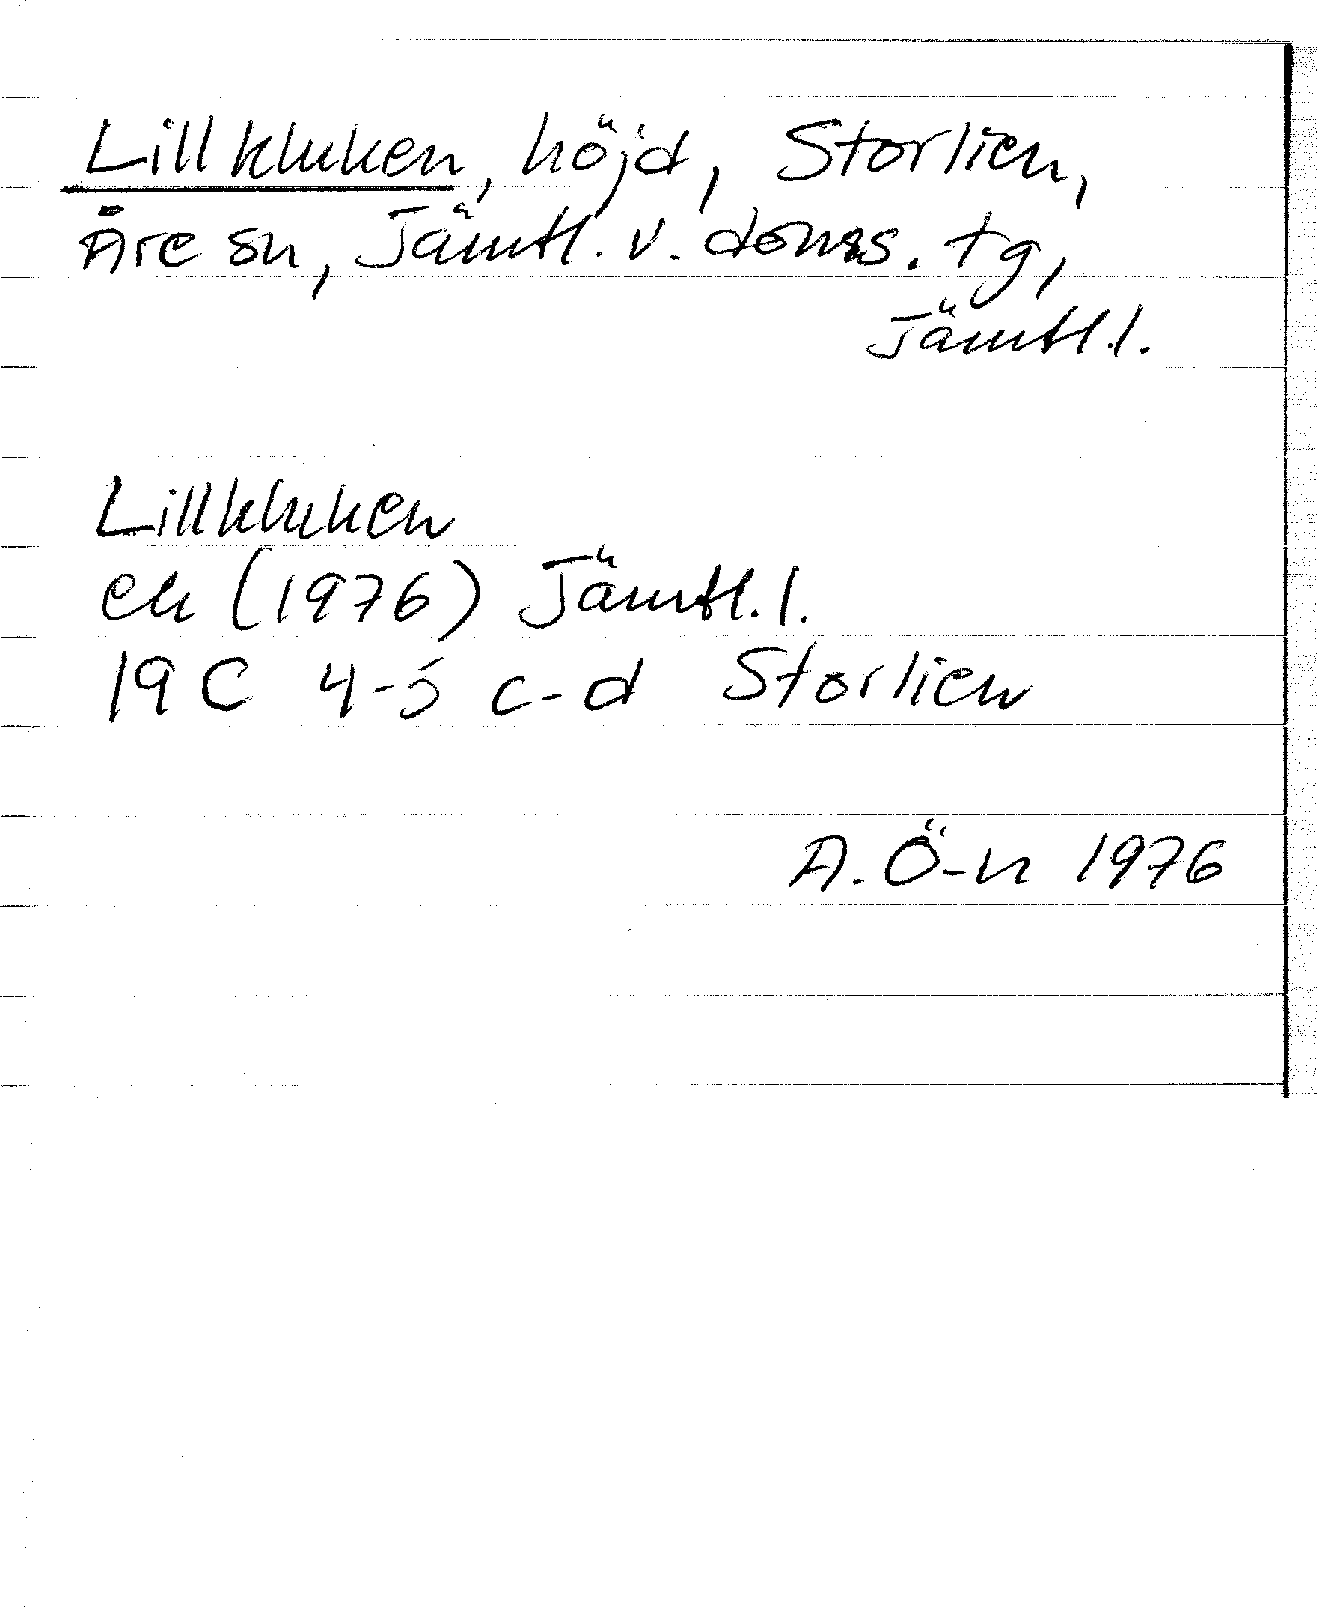 Lillkluken, höjd, Storlien,
Åre sn, Jämtl. v. doms. tg,
Jämtl. l.
Lillkluken
ek (1976) Jämtl. l.
19 C 4-5 c-d Storlien
A. Ö-n 1976